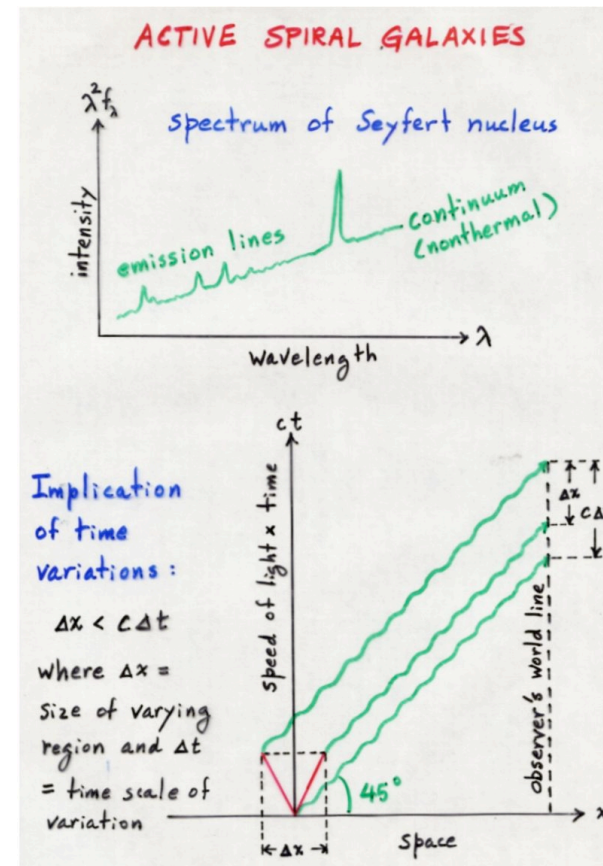 ACTIVE SPIRAL GALAXIES
λ²f_λ
spectrum of Seyfert nucleus
intensity
emission lines
continuum
(nonthermal)
λ
wavelength
ct
speed of light × time
Δx
cΔ
Implication
of time
variations:
Δx < cΔt
where Δx =
size of varying
region and Δt
= time scale of
variation
observer's world line
45°
Δx
space